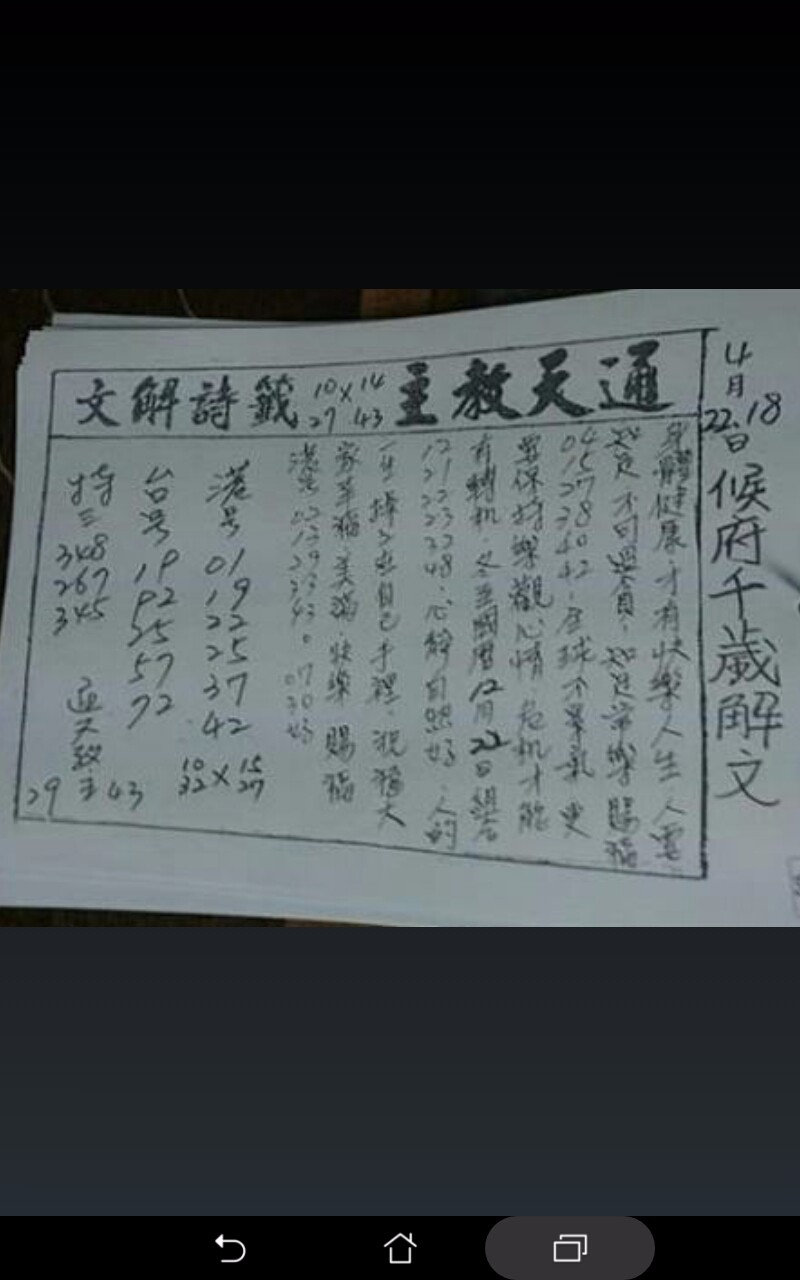 4月22.18日候府千歲解文
通天教主 10 14 × 27 43 籤詩解文
身體健康.才有快樂人生.人要
知足不可過貪.知足常樂賜福
04 15 27 38 40 42.全球不景氣更
要保持樂觀心情.危機才能
有轉机.冬至國曆12月22日組合
12 21 22 23 32 48.心解自然好.人的
一生掉入在自己手裡.祝福大
家幸福.美滿.快樂 賜福
港号 07 30
港号 01 19 22 25 37 42 10 15 × 32 27
台号 19 02 25 57 72
特三 348 267 345 通天教主 29 43